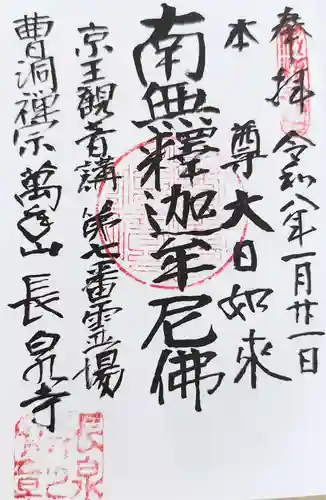 奉拝 令和八年一月廿一日
本尊大日如來
南無釋迦牟尼佛
京王觀音講第七番霊場
曹洞禅宗萬年山長泉寺
長泉